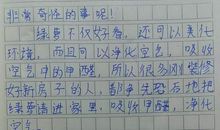 非常奇怪的事呢!
绿萝不仅好看,还可以美化
环境,而且可以净化空气,吸收
空气中的甲醛,所以很多刚装修
好新房子的人,都争先恐后地把
绿萝请进家里,吸收甲醛,净化
空气